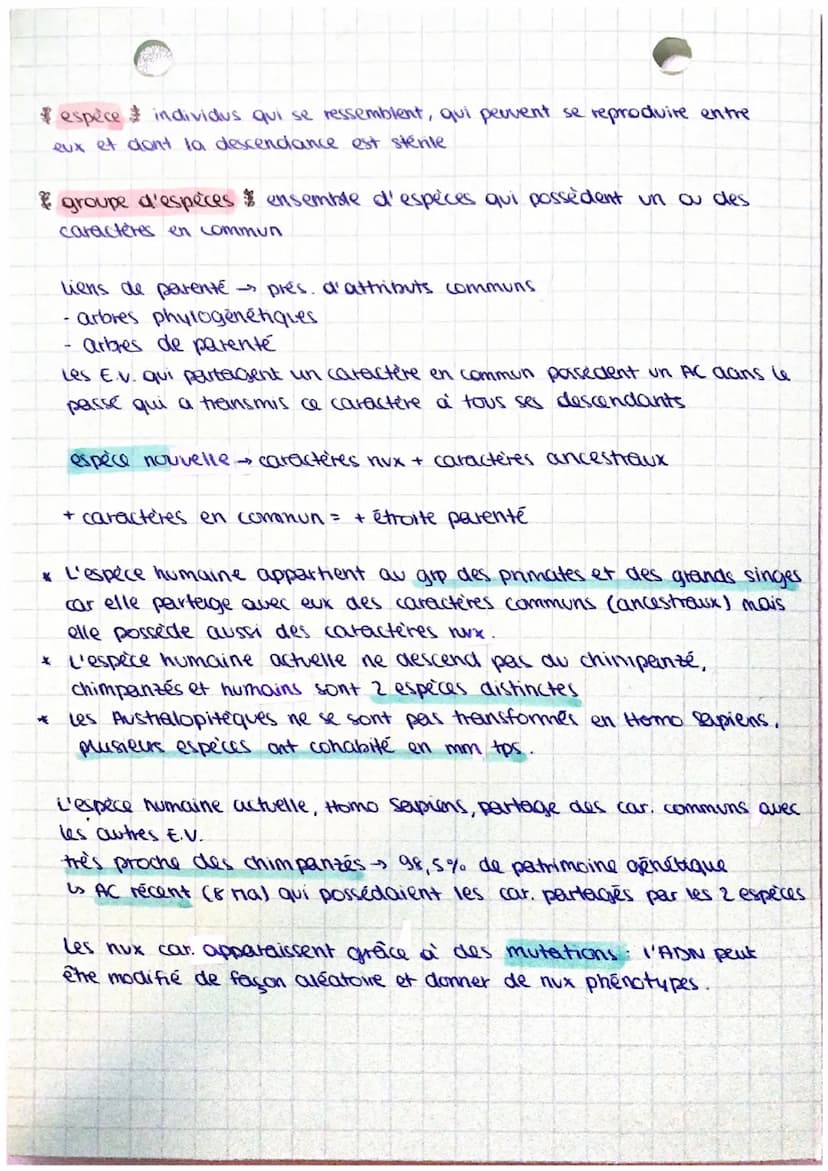 * espèce * individus qui se ressemblent, qui peuvent se reproduire entre
eux et dont la descendance est stérile
* groupe d'espèces * ensemble d'espèces qui possèdent un ou des
caractères en commun
liens de parenté → prés. d'attributs communs
- arbres phylogénétiques
- arbres de parenté
Les E.V. qui partagent un caractère en commun possèdent un AC dans le
passé qui a transmis ce caractère à tous ses descendants
espèce nouvelle → caractères nvx + caractères ancestraux
+ caractères en commun = + étroite parenté
* L'espèce humaine appartient au grp des primates et des grands singes
car elle partage avec eux des caractères communs (ancestraux) mais
elle possède aussi des caractères nvx.
* L'espèce humaine actuelle ne descend pas du chimpanzé,
chimpanzés et humains sont 2 espèces distinctes
* Les Australopitèques ne se sont pas transformés en Homo Sapiens,
plusieurs espèces ont cohabité en mm tps.
L'espèce humaine actuelle, Homo Sapiens, partage des car. communs avec
les autres E.V.
très proche des chimpanzés → 98,5% de patrimoine génétique
↳ AC récent (8 Ma) qui possédaient les car. partagés par les 2 espèces
Les nvx car. apparaissent grâce à des mutations : l'ADN peut
être modifié de façon aléatoire et donner de nvx phénotypes.